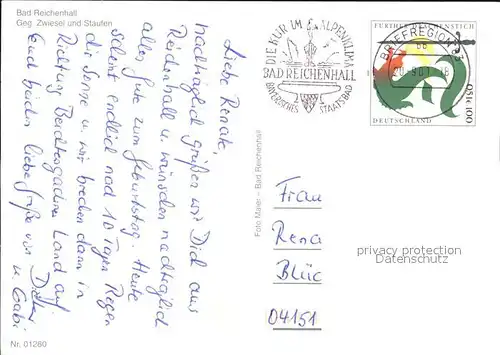 Bad Reichenhall
Geg. Zwiesel und Staufen
Liebe Renate,
nachträglich grüßen wir Dich aus
Reichenhall u. wünschen nachträglich
alles Gute zum Geburtstag. Heute
scheint endlich nach 10 Tagen Regen
die Sonne u. wir brechen dann in
Richtung Berchtesgadener Land auf.
Euch beiden liebe Grüße von
u. Gabi
Nr. 01260
Foto Maier - Bad Reichenhall
DIE KUR IM ALPENKLIMA
BAD REICHENHALL
BAYERISCHES STAATSBAD
BRIEFREGION 83
FURTHER DRACHENSTICH
DEUTSCHLAND
100
0,51€
Frau
Rena
Blüc
04151
privacy protection
Datenschutz